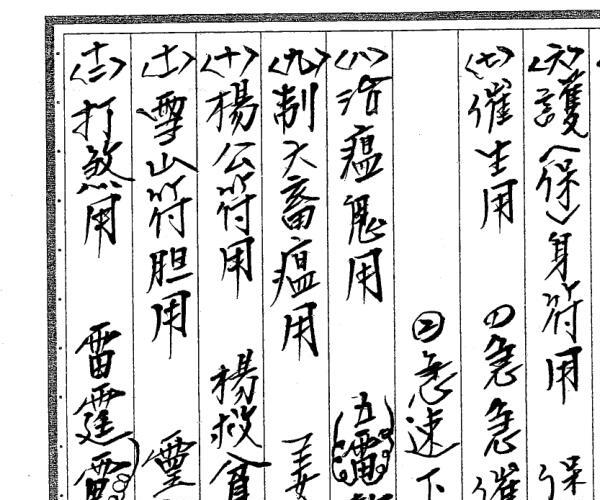 〈六〉護〈保〉身符用 保
〈七〉催生用 ①急急催
②急速下
〈八〉治瘟鬼用 五雷
〈九〉制六畜瘟用 姜
〈十〉楊公符用 楊救貧
〈十一〉雪山符胆用 靈
〈十二〉打煞用 雷霆